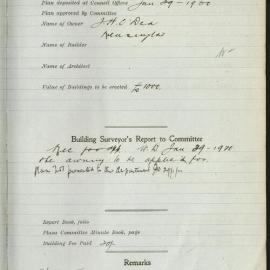 Plan deposited at Council Offices Jan 29 - 1900
Plan approved by Committee
Name of Owner J. H. C Dea
Kensington
Name of Builder
Name of Architect
Value of Buildings to be erected £1000.
Building Surveyor's Report to Committee
Rec for app W.D Jan 29 - 1900
the awning to be applied for.
Plan not presented to this department
Report Book, folio
Plans Committee Minute Book, page
Building Fee Paid
Remarks